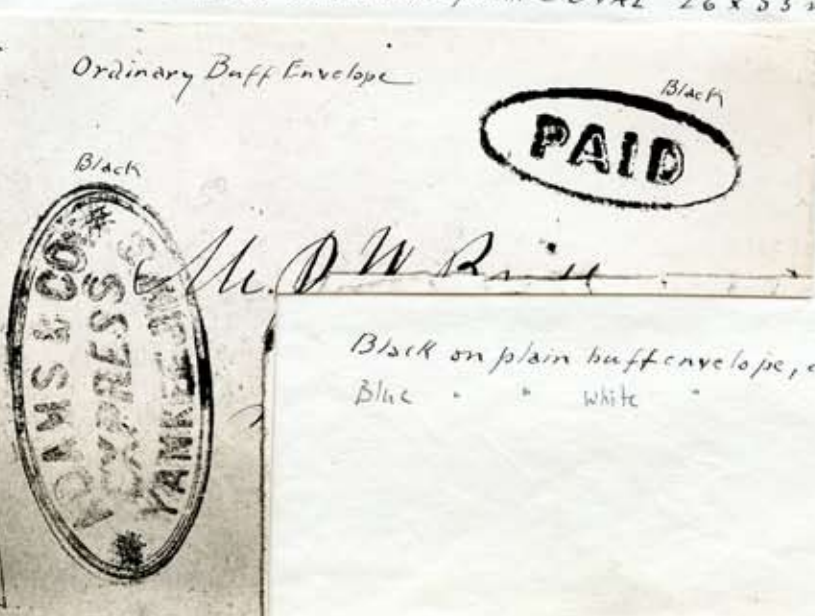 OVAL 26 x 53
Ordinary Buff Envelope
Black
PAID
Black
ADAMS & CO.
EXPRESS
YANKEE JIMS
Mr. D W
Black on plain buff envelope,
Blue " " White "